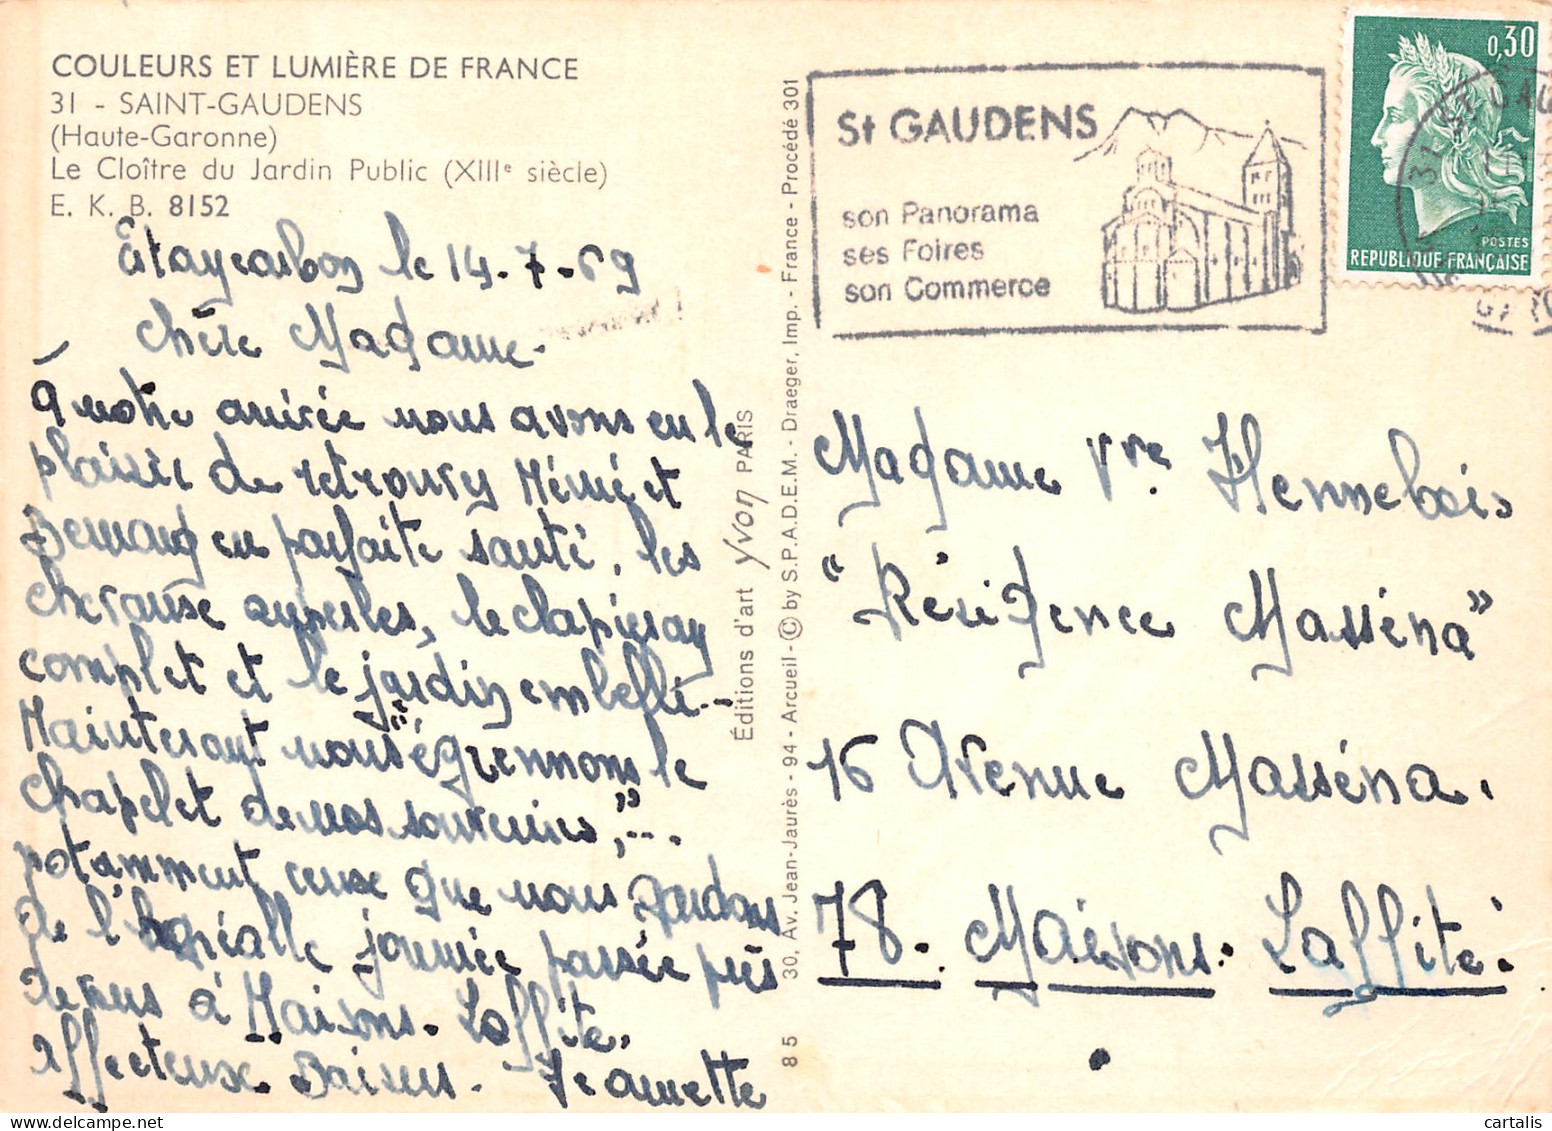 COULEURS ET LUMIÈRE DE FRANCE
31 - SAINT-GAUDENS
(Haute-Garonne)
Le Cloître du Jardin Public (XIIIe siècle)
E. K. B. 8152
le 14-7-69
Chère Madame -
À notre arrivée nous avons eu le
plaisir de retrouver Mémé et
Bernard en parfaite santé, les
superbes, le clapier au
complet et le jardin embelli...
Maintenant nous "égrennons le
chapelet de nos souvenirs,"...
notamment ceux que nous gardons
de l' journée passée près
de vous à Maisons-Laffite.
Affectueux Baisers. Jeannette
Éditions d'art Yvon PARIS
30, Av. Jean-Jaurès - 94 - Arcueil - © by S.P.A.D.E.M. - Draeger, Imp. - France - Procédé 301
85
St GAUDENS
son Panorama
ses Foires
son Commerce
0,30
POSTES
REPUBLIQUE FRANÇAISE
31 ST GAU
Madame Vve Hennebois
"Résidence Masséna"
16 Avenue Masséna.
78. Maisons-Laffite.
cartalis